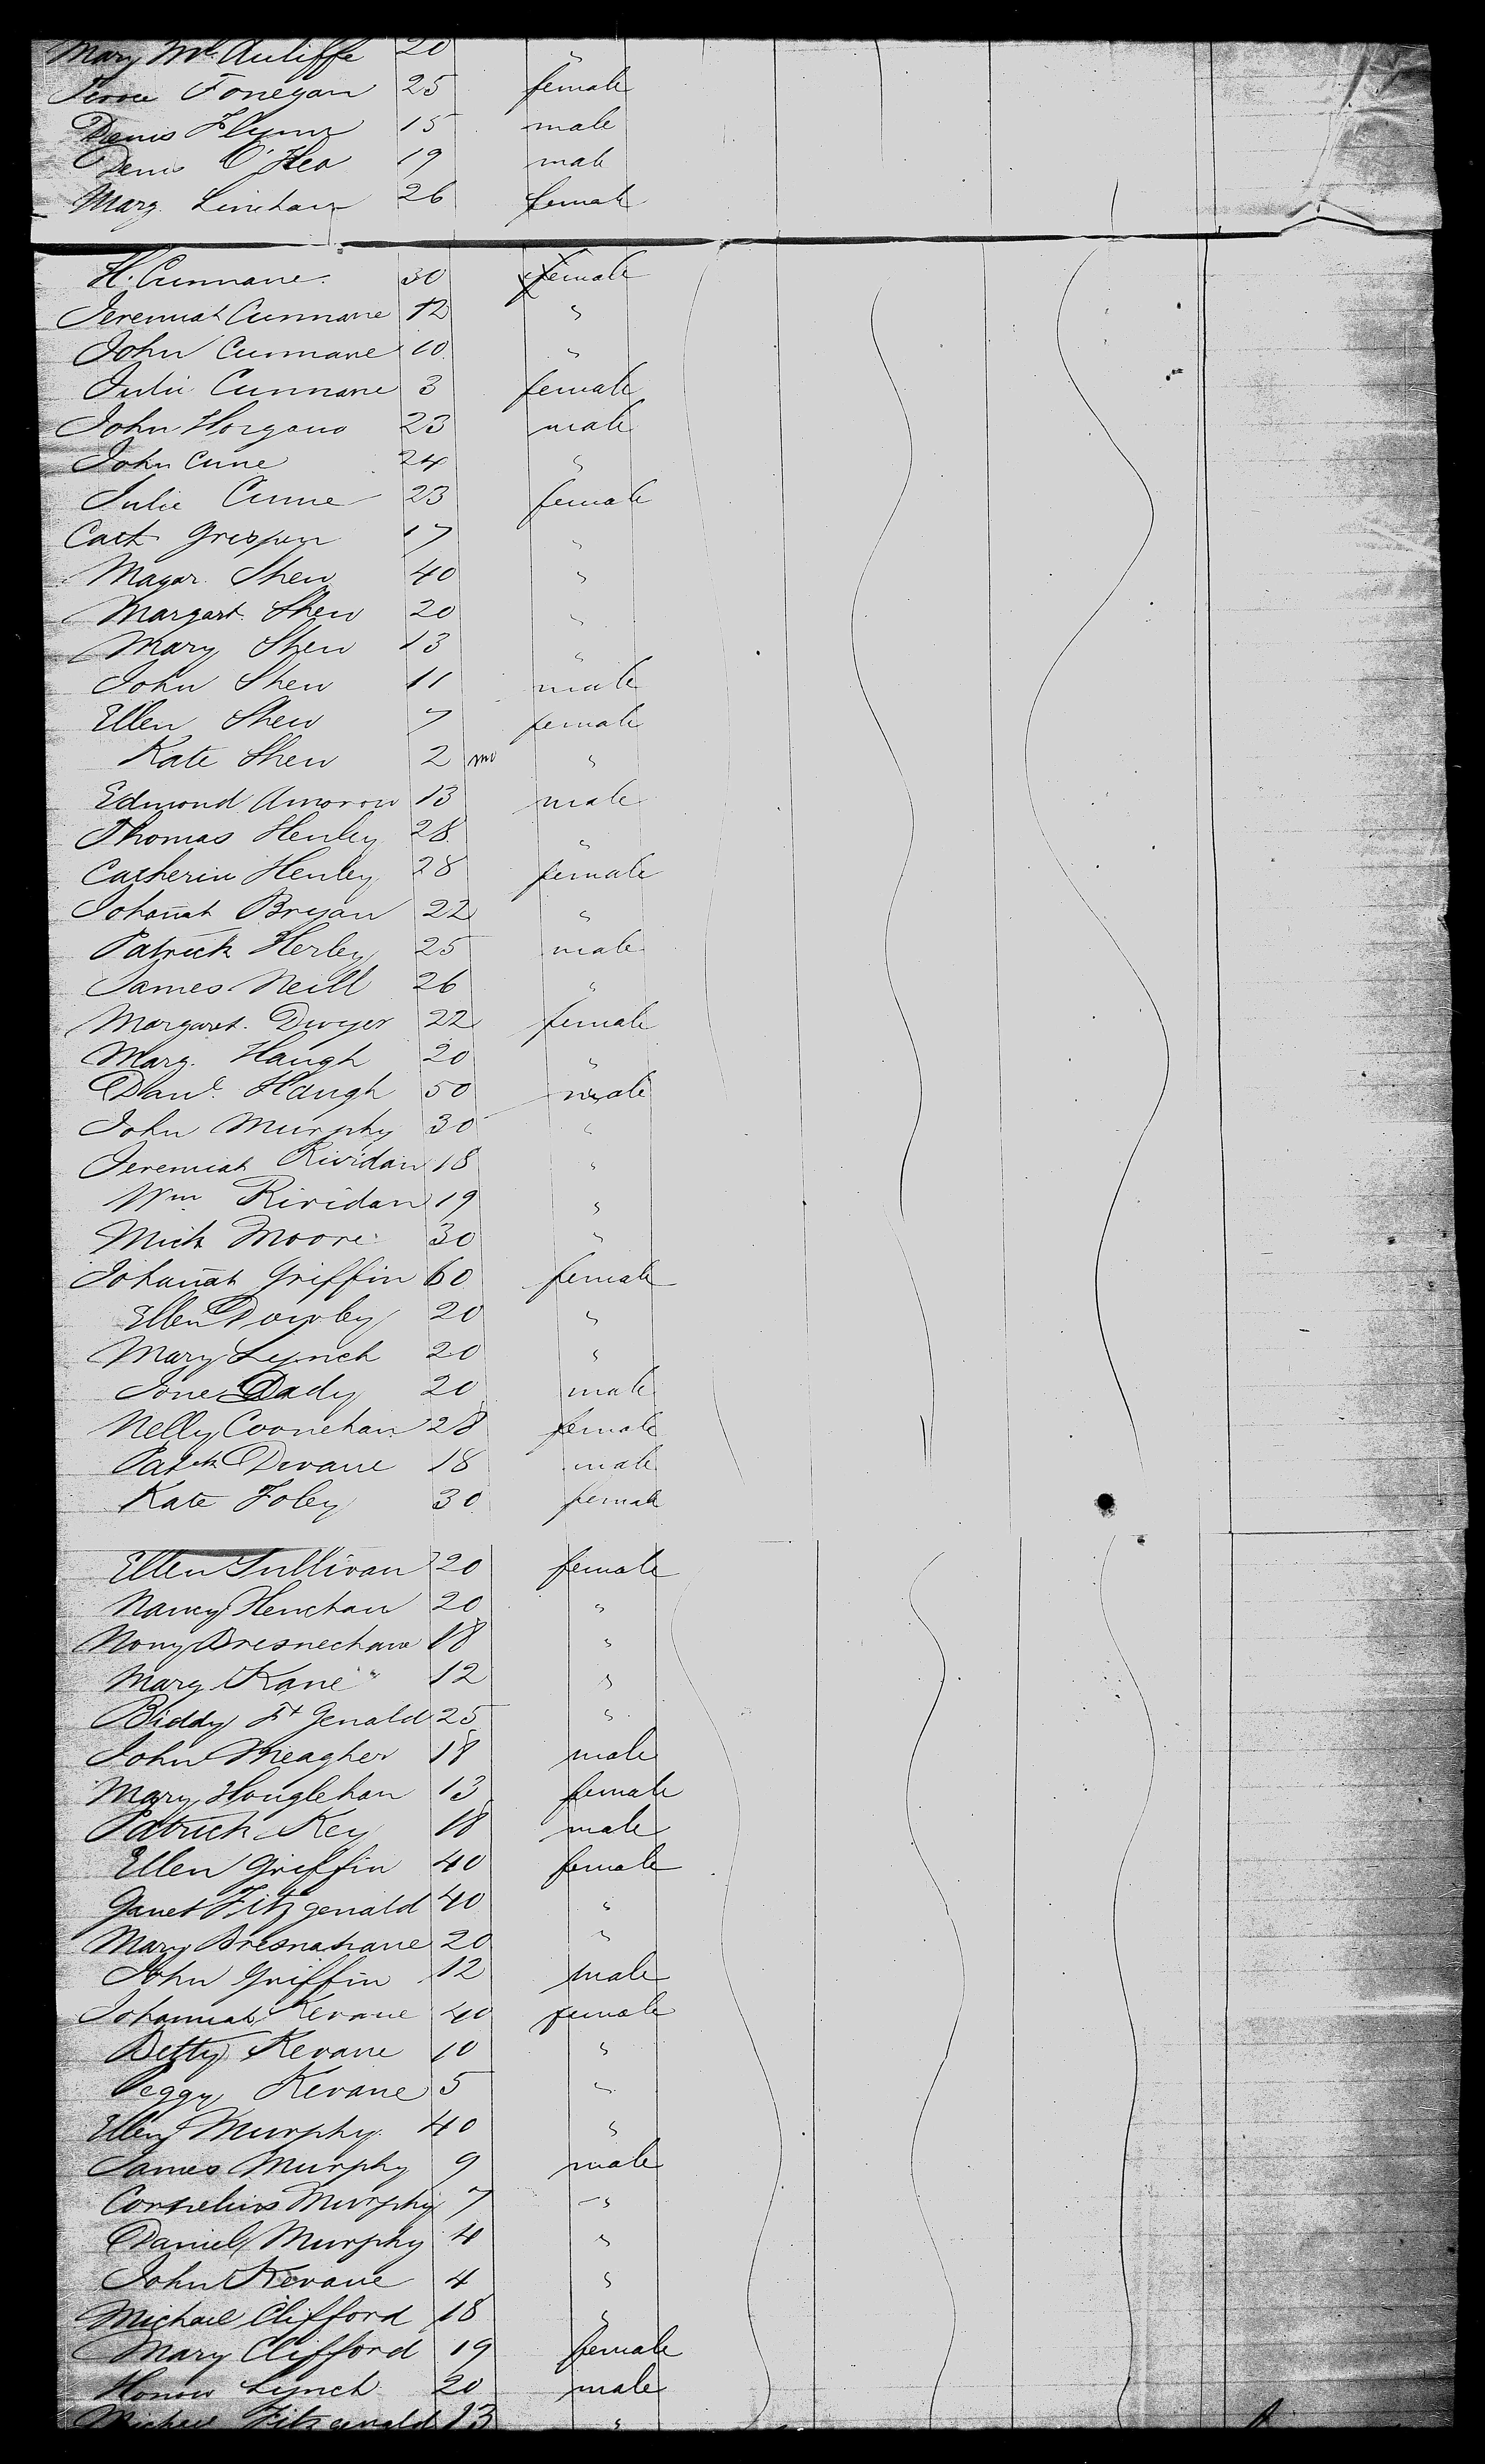 Mary McAuliffe 20 "
Fonegan 25 female
Denis Flynn 15 male
Denis O'Hea 19 male
Marg. Linehan 26 female
H. Cunnane 30 female
Jeremiah Cunnane 12 "
John Cunnane 10 "
Julie Cunnane 3 female
John Horgano 23 male
John Cune 24 "
Julie Cunne 23 female
Cath 17 "
Magar. Shew 40 "
Margart Shew 20 "
Mary Shew 13 "
John Shew 11 male
Ellen Shew 7 female
Kate Shew 2 mo "
Edmond Amorow 13 male
Thomas Henley 28 "
Catherin Henley 28 female
Johanah Bryan 22 "
Patrick Herley 25 male
James Neill 26 "
Margaret Dwyer 22 female
Marg. Haugh 20 "
Danl. Haugh 50 male
John Murphy 30 "
Jeremiah Rividan 18 "
Wm Riridan 19 "
Mick Moore 30 "
Johanah Griffin 60 female
Ellen 20 "
Mary Lynch 20 "
Jone Dady 20 male
Nelly Coonehan 28 female
Patck Divane 18 male
Kate Foley 30 female
Ellen Sullivan 20 female
Nancy Henchan 20 "
Nony Bresnechane 18 "
Mary Kane 12 "
Biddy Ft Genald 25 "
John Meagher 18 male
Mary Houglehan 13 female
Patrick Key 18 male
Ellen Griffin 40 female
Ganet Fitzgenald 40 "
Mary Bresnahane 20 "
John Griffin 12 male
Johannah Kevane 40 female
Betty Kevane 10 "
Peggy Kevane 5 "
Ellen Murphy 40 "
James Murphy 9 male
Cornelius Murphy 7 "
Daniel Murphy 4 "
John Kevane 4 "
Michael Clifford 18 "
Mary Clifford 19 female
Honow Lynch 20 male
Michael Fitzgenald 13 "